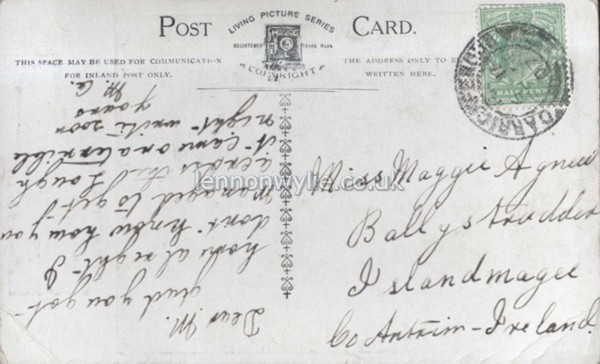 POST CARD.
LIVING PICTURE SERIES
REGISTERED TRADE MARK
COPYRIGHT
THIS SPACE MAY BE USED FOR COMMUNICATION
FOR INLAND POST ONLY.
THE ADDRESS ONLY TO BE
WRITTEN HERE.
HALF PENNY
CARRICK
Dear M.
did you got
home al right - I
dont know how you
managed to get
across the Lough
it came on a terrible
night - write soon
yours
M. C.
Miss Maggie Agnew
Ballystrudder
Islandmagee
Co Antrim - Ireland.
lennonwylie.co.uk